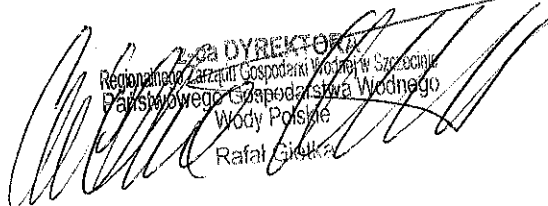 Z-ca DYREKTORA
Regionalnego Zarządu Gospodarki Wodnej w Szczecinie
Państwowego Gospodarstwa Wodnego
Wody Polskie
Rafał